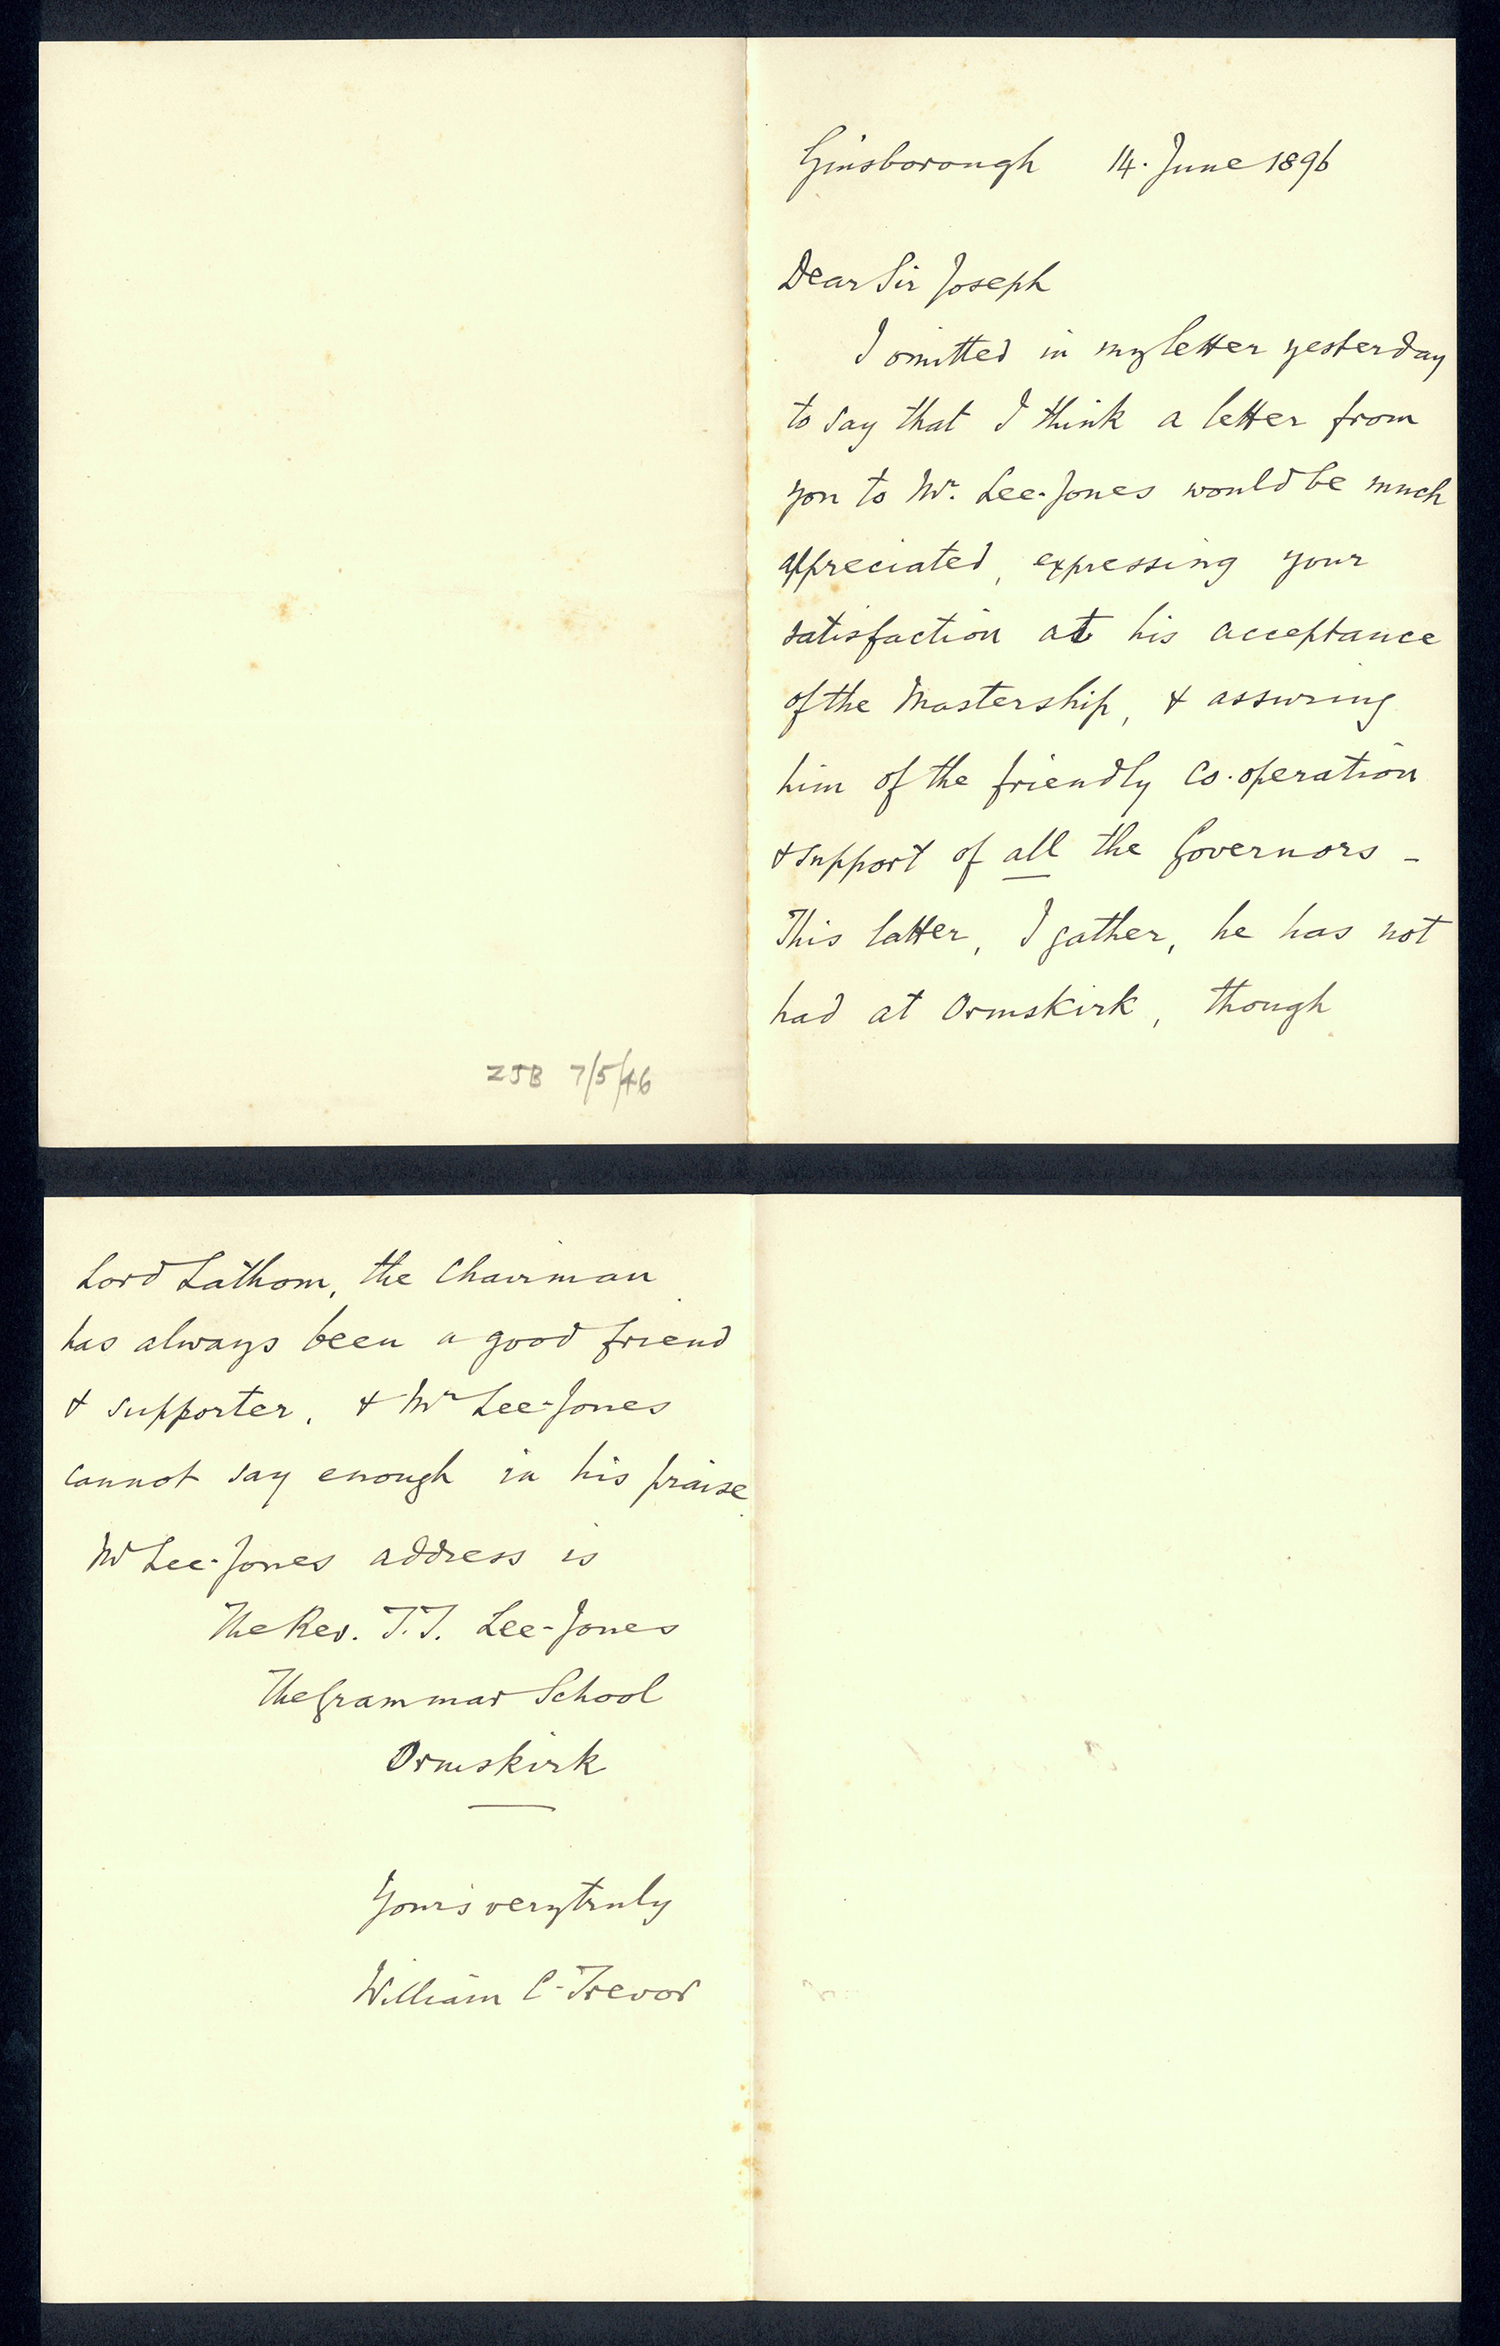 Ginsborough 14. June 1896
Dear Sir Joseph
I omitted in my letter yesterday
to say that I think a letter from
you to Mr. Lee-Jones would be much
appreciated, expressing your
satisfaction at his acceptance
of the Mastership, & assuring
him of the friendly co-operation
& support of all the Governors –
This latter, I gather, he has not
had at Ormskirk, though
ZJB 7/5/46
Lord Lathom, the Chairman
has always been a good friend
& supporter, & Mr Lee-Jones
cannot say enough in his praise.
Mr Lee-Jones address is
The Rev. J.J. Lee-Jones
The Grammar School
Ormskirk
Yours very truly
William C. Trevor